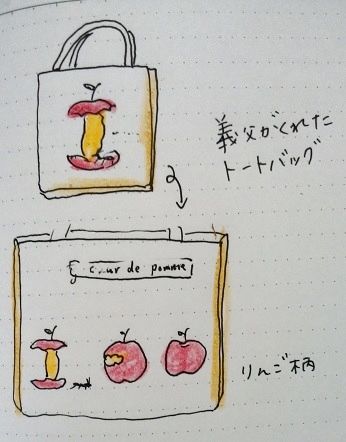 義父がくれた
トートバッグ
de pomme
りんご柄